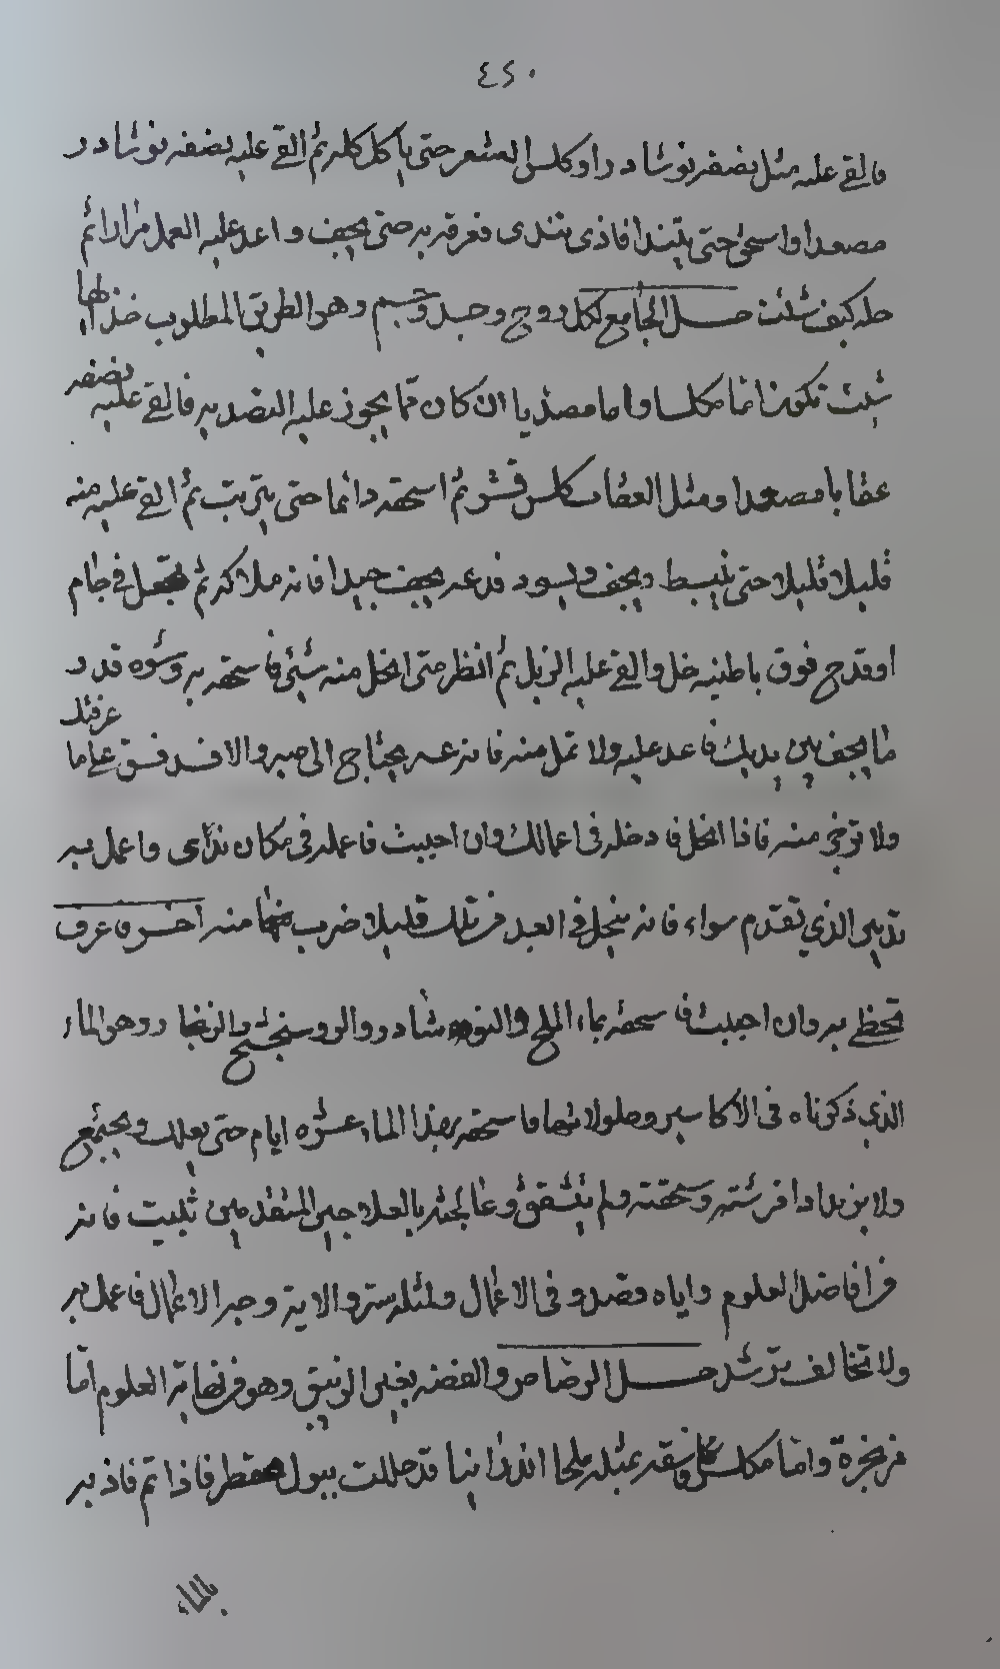 ٤٢٠
فالقى عليه مثل نصفه نوشادرا وكلس الشعر حتى ياكل كله ثم القى عليه نصفه نوشادر
مصعدا واسحق حتى يتندا فاذى تندى فغرقه به حتى يجف واعد عليه العمل مرارا ثم
حله كيف شئت حل الجامع لكل روح وجسد وجسم وهو الطريق المطلوب خذ ايها
شئت تكون اما مكلسا واما مصديا ان كان مما يجوز عليه التصديه فالقى عليه نصفه
عقابا مصعدا ومثل العقاب كلس قشر ثم اسحقه دائما حتى يتربب ثم القى عليه منه
قليلا قليلا حتى ينبسط ويجف ويسود فدعه يجف جيدا فانه ملاكه ثم تجعل في جام
او قدح فوق باطيه خل والقى عليه الزبل ثم انظر متى انحل منه شئ فاسحقه به وشوه قدر
ما يجف بين يديك فاعد عليه ولا تمل منه فانه يحتاج الى صبر والا فسد فسق على ما عرفتك
ولا ترخى منه فاذا انحل فادخله في اعمالك وان احببت فاعمله في مكان ندى واعمل به
تدبير الذي تقدم سواء فانه ينحل في العبد فرتك قليلا ضرب منه اخر فاعرف
تحظى به وان احببت فاسحقه بماء الملح والنوشادر والروسختج والزنجار وهو الماء
الذي ذكرناه في الاكاسير وحلولاتها فاسحقه بهذا الماء عشره ايام حتى يعلك ويجتمع
ولا يزيد اذا فرشته وسحقته ولم يتشقق وعالجته بالعلاجين المتقدمين ثبيت فانه
من افاضل العلوم واياه فصدو في الاعمال ولمثله ستروا لاية وجه الاعمال فاعمل به
ولا تخالف ترشد حل الرصاص والفضه بغير الزيبق وهو من نهاية العلوم اما
مزنجرة واما مكلسا فاسقه بمثله ملحا اندرانيا قد حللت ببول مقطر فاذا تم فاذ به
بالماء